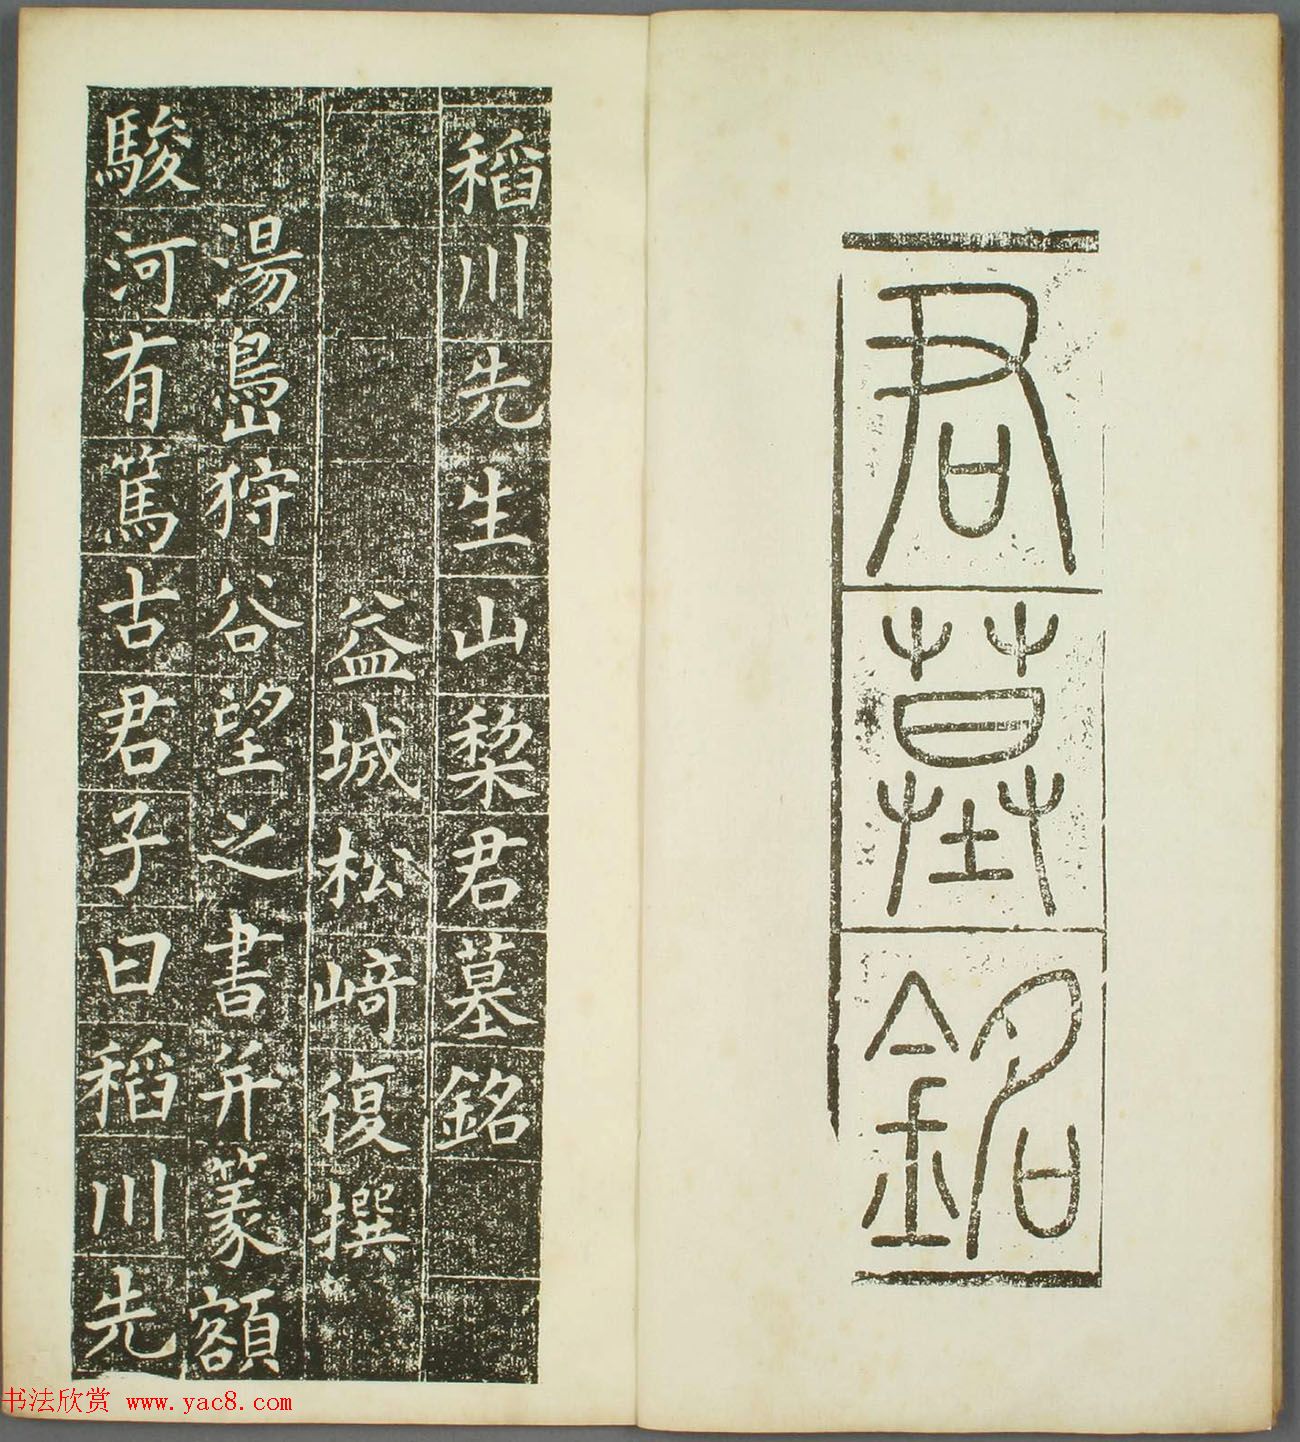 君墓銘
稻川先生山棃君墓銘
益城松﨑復撰
湯嶌狩谷望之書并篆額
駿河有篤古君子曰稻川先
书法欣赏 www.yac8.com